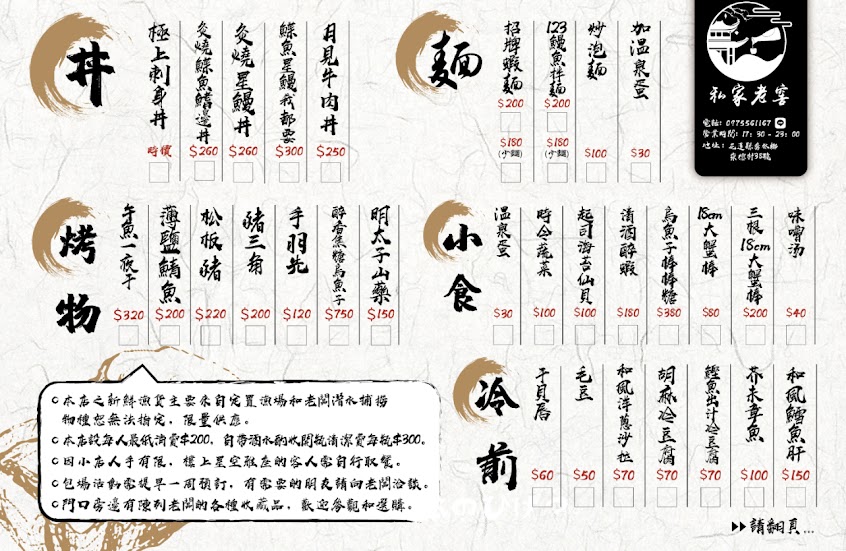 丼
極上刺身丼
時價
炙燒鰈魚鰭邊丼
$260
炙燒星鰻丼
$260
鰈魚星鰻我都要
$300
月見牛肉丼
$250
麵
招牌蝦麵
$200
$180
(少麵)
123鰻魚拌麵
$200
$180
(少麵)
炒泡麵
$100
加溫泉蛋
$30
私家老窖
電話: 0975561167
營業時間: 17:30-23:00
地址:
烤物
午魚一夜干
$320
薄鹽鯖魚
$200
松板豬
$220
豬三角
$200
手羽先
$120
醉香焦糖烏魚子
$750
明太子山藥
$150
小食
溫泉蛋
$30
時令蔬菜
$100
起司海苔仙貝
$100
清酒醉蝦
$180
烏魚子棒棒糖
$380
18cm大蟹棒
$80
三根18cm大蟹棒
$200
味噌湯
$40
冷前
干貝唇
$60
毛豆
$50
和風洋蔥沙拉
$70
胡麻冷豆腐
$70
鰹魚出汁冷豆腐
$70
芥末章魚
$100
和風鱈魚肝
$150
本店之新鮮漁貨主要來自定置漁場和老闆潛水捕撈
物種恕無法指定，限量供應。
本店設每人最低消費$200，自帶酒水酌收開瓶清潔費每瓶$300。
因小店人手有限，樓上星空敞座的客人需自行取餐。
包場活動需提早一周預訂，有需要的朋友請向老闆洽談。
門口旁邊有陳列老闆的各種收藏品，歡迎參觀和選購。
請翻頁...